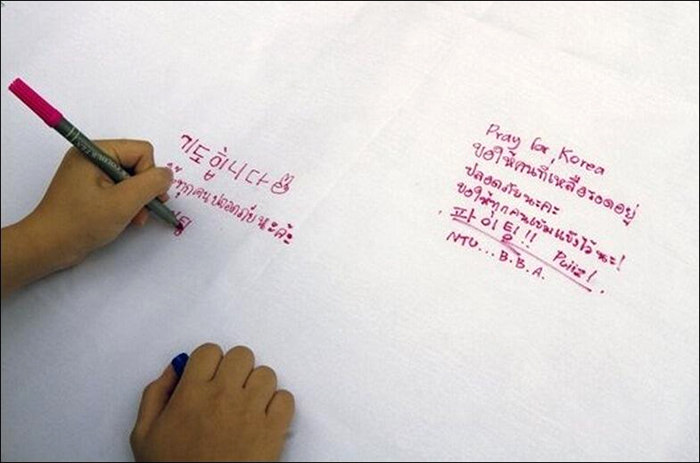 기도합니다
ให้ทุกคนปลอดภัยนะคะ
Pray for Korea
ขอให้คนที่เหลือรอดอยู่
ปลอดภัยนะคะ
ขอให้ทุกคนเข้มแข็งไว้นะ!
파이팅!!
NTU... B.B.A.